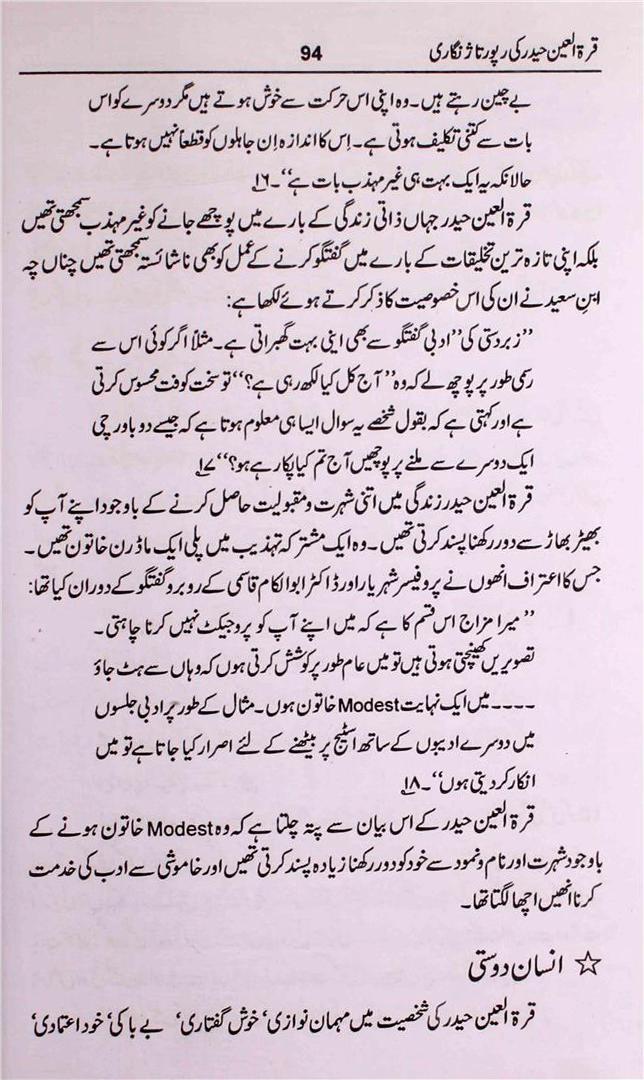 قرۃ العین حیدر کی رپورتاژ نگاری 94
بے چین رہتے ہیں۔ وہ اپنی اس حرکت سے خوش ہوتے ہیں مگر دوسرے کو اس
بات سے کتنی تکلیف ہوتی ہے۔ اِس کا اندازہ اِن جاہلوں کو قطعاً نہیں ہوتا ہے۔
حالانکہ یہ ایک بہت ہی غیر مہذب بات ہے‘‘۔ ۱۶
قرۃ العین حیدر جہاں ذاتی زندگی کے بارے میں پوچھے جانے کو غیر مہذب سمجھتی تھیں
بلکہ اپنی تازہ ترین تخلیقات کے بارے میں گفتگو کرنے کے عمل کو بھی ناشائستہ سمجھتی تھیں چناں چہ
ابنِ سعید نے ان کی اس خصوصیت کا ذکر کرتے ہوئے لکھا ہے:
’’زبردستی کی‘‘ ادبی گفتگو سے بھی اینی بہت گھبراتی ہے۔ مثلاً اگر کوئی اس سے
رسمی طور پر پوچھ لے کہ وہ ’’آج کل کیا لکھ رہی ہے؟‘‘ تو سخت کوفت محسوس کرتی
ہے اور کہتی ہے کہ بقول شخصے یہ سوال ایسا ہی معلوم ہوتا ہے کہ جیسے دو باورچی
ایک دوسرے سے ملنے پر پوچھیں آج تم کیا پکار ہے ہو؟‘‘ ۱۷
قرۃ العین حیدر زندگی میں اتنی شہرت و مقبولیت حاصل کرنے کے باوجود اپنے آپ کو
بھیڑ بھاڑ سے دور رکھنا پسند کرتی تھیں۔ وہ ایک مشترکہ تہذیب میں پلی ایک ماڈرن خاتون تھیں۔
جس کا اعتراف انھوں نے پروفیسر شہریار اور ڈاکٹر ابوالکام قاسمی کے روبرو گفتگو کے دوران کیا تھا:
’’میرا مزاج اس قسم کا ہے کہ میں اپنے آپ کو پروجیکٹ نہیں کرنا چاہتی۔
تصویریں کھینچتی ہوتی ہیں تو میں عام طور پر کوشش کرتی ہوں کہ وہاں سے ہٹ جاؤ
۔۔۔۔ میں ایک نہایت Modest خاتون ہوں۔ مثال کے طور پر ادبی جلسوں
میں دوسرے ادیبوں کے ساتھ اسٹیج پر بیٹھنے کے لئے اصرار کیا جاتا ہے تو میں
انکار کردیتی ہوں‘‘۔ ۱۸
قرۃ العین حیدر کے اس بیان سے پتہ چلتا ہے کہ وہ Modest خاتون ہونے کے
باوجود شہرت اور نام و نمود سے خود کو دور رکھنا زیادہ پسند کرتی تھیں اور خاموشی سے ادب کی خدمت
کرنا انھیں اچھا لگتا تھا۔
☆ انسان دوستی
قرۃ العین حیدر کی شخصیت میں مہمان نوازی‘ خوش گفتاری‘ بے باکی‘ خود اعتمادی‘